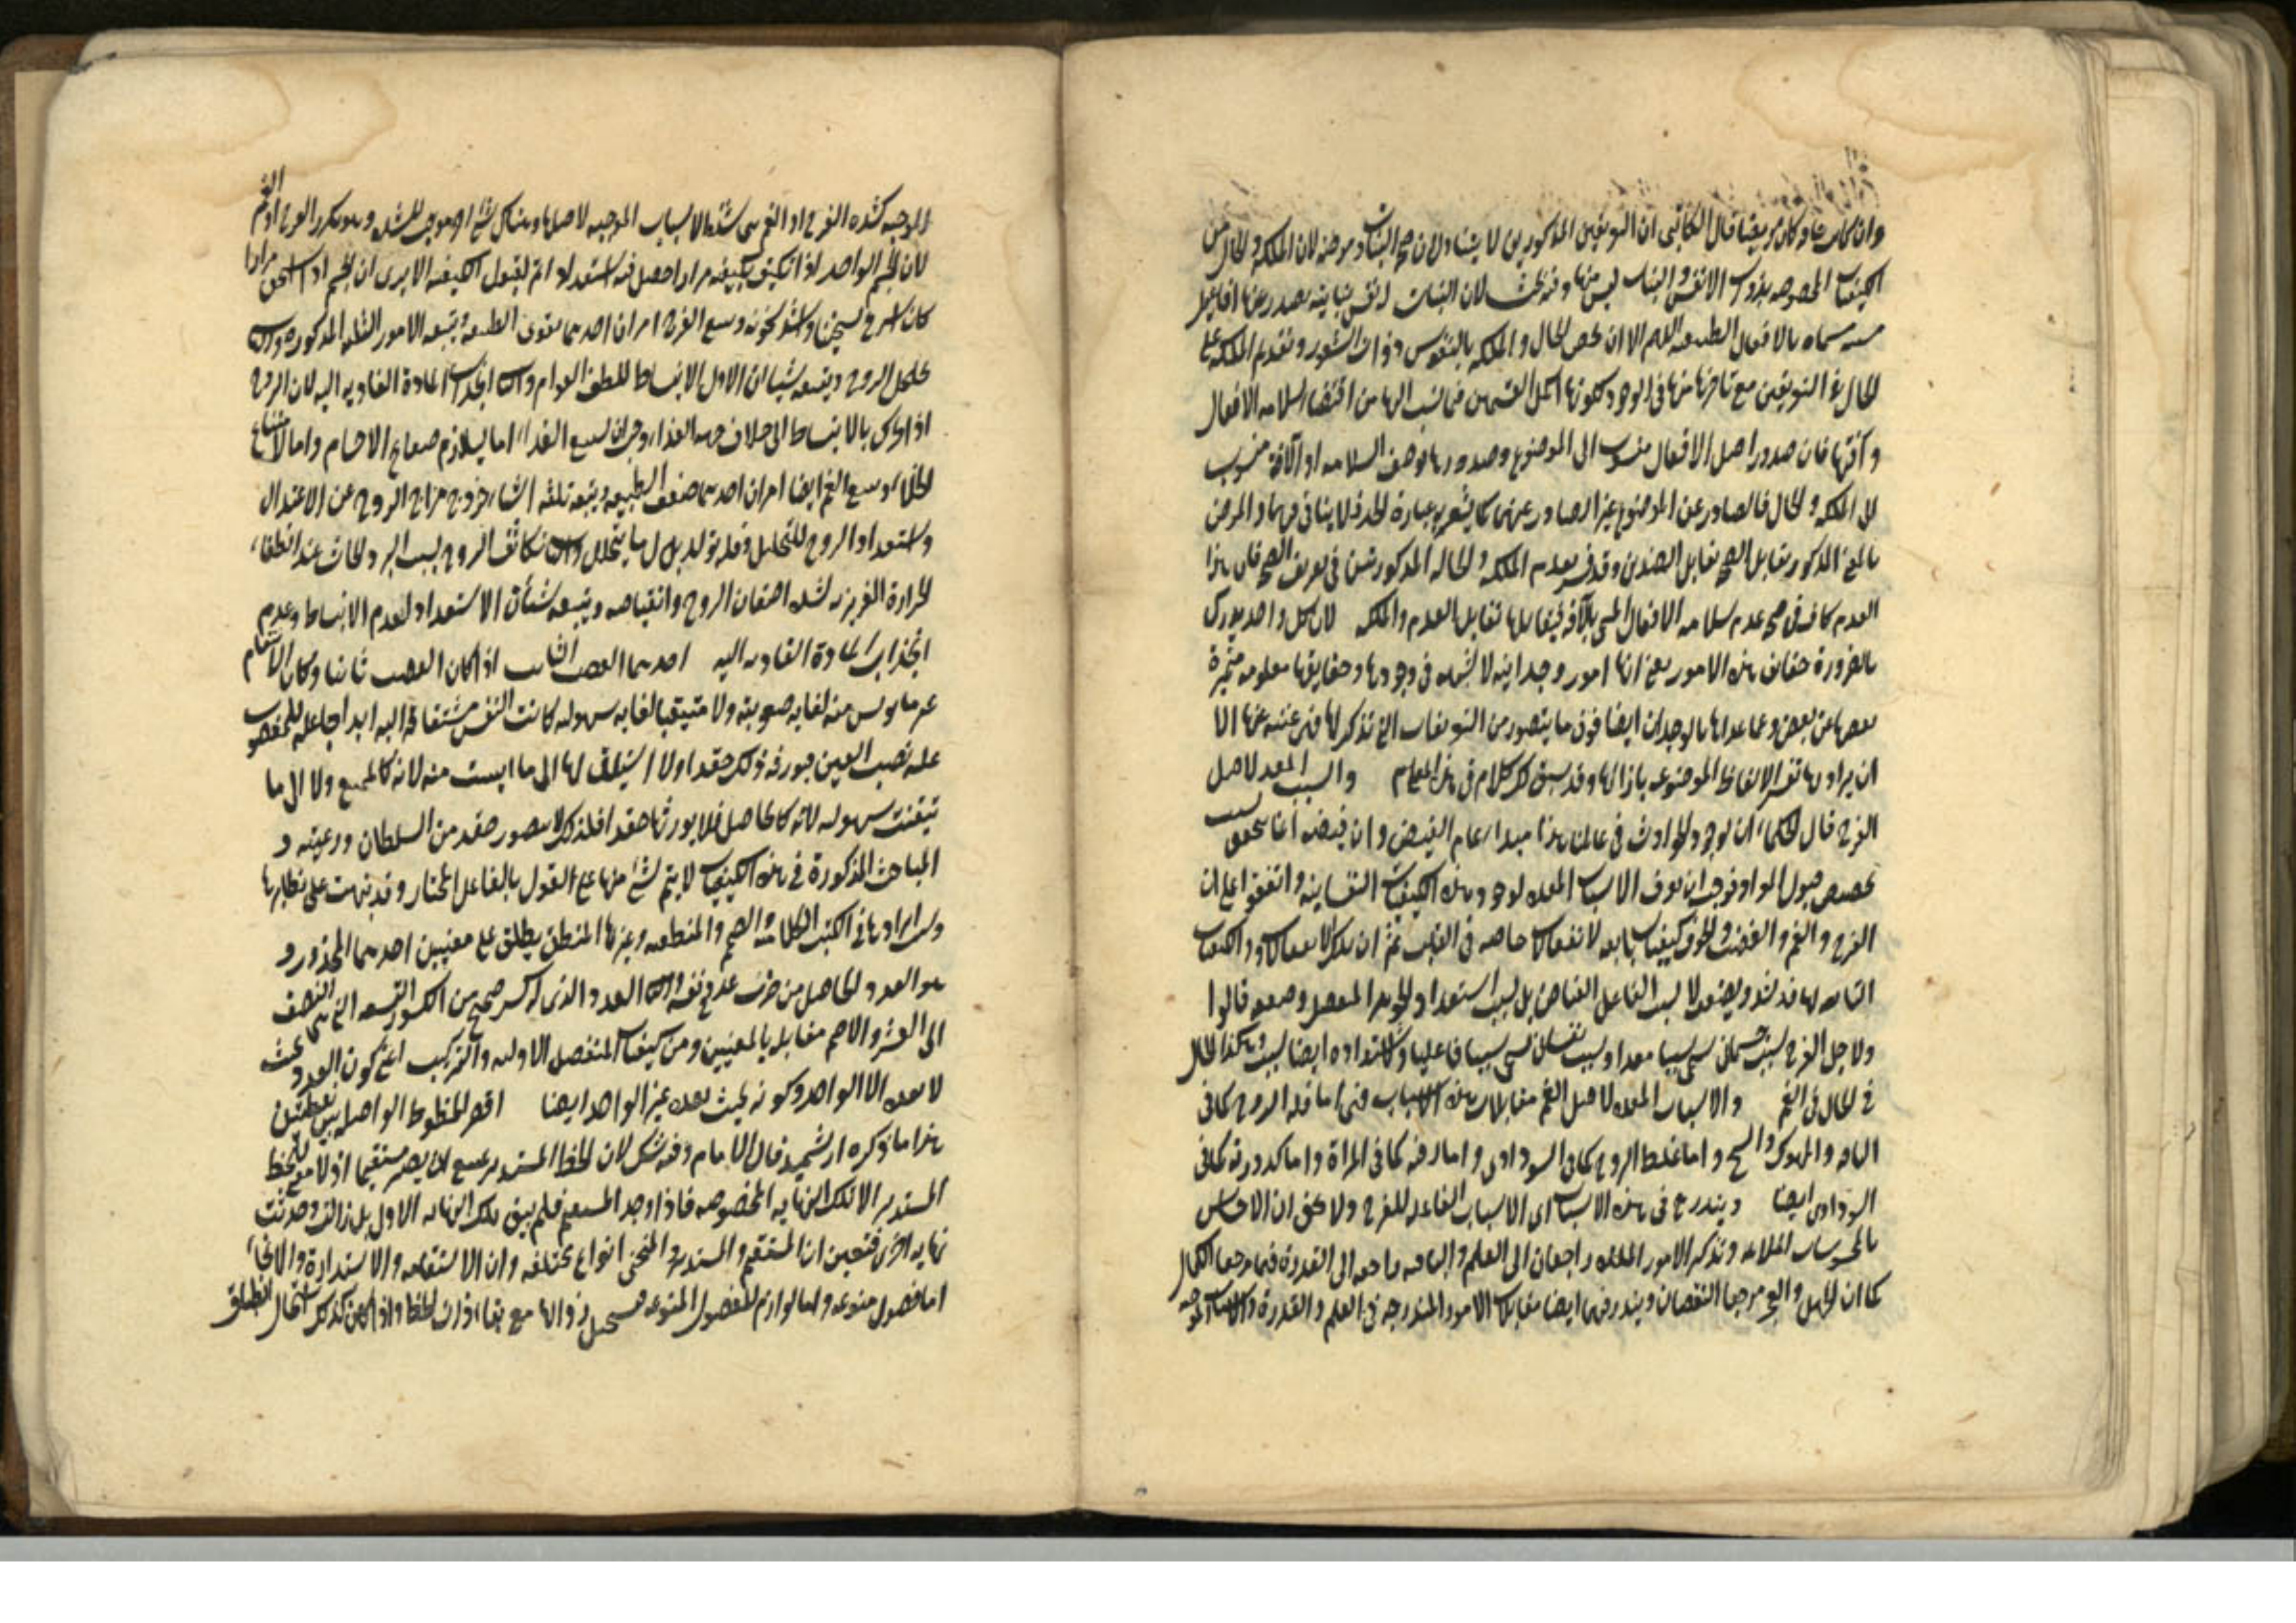 وان كان مريضا قال الكاتبى ان التعريفين المذكورين لا يتناولان صحة النبات ومرضه لان الملكة والحال من
الكيفيات المخصوصة بذوات الانفس والنبات ليس منها وفيه بحث لان النبات له نفس نباتية يصدر عنها افاعيل
مسماة بالافعال الطبيعية اللهم الا ان يخص الحال والملكة بالنفوس ذوات الشعور وتقديم الملكة على
الحال فى التعريفين مع تاخرها عنها فى الوجود لكونها اكمل القسمين فيما نسب اليها من اقتضاء سلامة الافعال
وآفتها فان صدور اصل الافعال منسوب الى الموضوع وصدورها بوصف السلامة او الآفة منسوب
الى الملكة والحال فالصادر عن الموضوع غير الصادر عنهما كما يشعر به عبارة الحد فلا ينافى فيهما والمرض
بالمعنى المذكور يقابل الصحة تقابل الضدين وقد فسر بعدم الملكة والحالة المذكورتين فى تعريف الصحة فان هذا
العدم كاف فى عدم سلامة الافعال المسمى بالآفة فيقابلها تقابل العدم والملكة لان كل واحد يدرك
بالضرورة حقائق هذه الامور يعنى انها امور وجدانية لا شبهة فى وجودها وحقايقها معلومة متميزة
بعضها عن بعض وعما عداها بالوجدان ايضا فوق ما يتصور من التعريفات التى تذكر لها فهى غنية عنها الا
ان يراد بها تفسير الالفاظ الموضوعة بازائها وقد سبق لك كلام فى هذا المقام والسبب المعد لاصل
الفرح قال الحكماء ان لوجود الحوادث فى عالمنا هذا مبدأ عام الفيض وان فيضه انما يتحقق بحسب
تخصص قبول المواد فوجب ان نعرف الاسباب المعدة لوجود هذه الكيفيات النفسانية واتفقوا على ان
الفرح والغم والغضب والخوف كيفيات تابعة لانفعالات خاصة فى القلب ثم ان تلك الانفعالات والكيفيات
التابعة لها قد تشتد وتضعف لا بسبب الفاعل الفياض بل بسبب استعداد الجوهر المنفعل وضعفه قالوا
ولاجل الفرح سبب جسمانى سمى سببا معدا وسبب نفسانى سمى سببا فاعليا ولاشتداده ايضا سبب وهكذا الحال
فى الحال فى الغم والاسباب المعدة لاصل الغم مقابلات هذه الاسباب فهى اما قلة الروح كما فى
الناقه والمنهوك والشيخ واما غلظ الروح كما فى السوداوى واما رقته كما فى المرأة واما كدورته كما فى
السوداوى ايضا ويندرج فى هذه الاسباب اى الاسباب الفاعلة للفرح ولا يخفى ان الاحساس
بالمحسوسات الملائمة وتذكر الامور الملذة راجعان الى العلم والباقية راجعة الى القدرة فيهما مرجعا الكمال
كما ان الجهل والعجز مرجعا النقصان ويندرج فيهما ايضا مقابلات الامور المندرجة فى العلم والقدرة والاسباب الموجبة
الموجبة لشدة الفرح او الغم هى شدة الاسباب الموجبة لاصلها وهناك شئ اخر موجب للشدة وهو تكرر الفرح او الغم
لان الجسم الواحد اذا تكيف بكيفية مرارا حصل فيه استعداد اتم لقبول الكيفية الا يرى ان الجسم اذا تسخن مرارا
كان اسرع تسخنا واشد سخونة ويتبع الفرح امران احدهما تقوى الطبيعة وتتبعه الامور الثلثة المذكورة والثانى
تخلخل الروح ويتبعه شيئان الاول الانبساط للطف القوام والثانى انجذاب المادة الغاذية اليه لان الروح
اذا تحرك بالانبساط الى خلاف جهة الغذاء وجب ان يتبع الغذاء اما لتلازم صفائح الاجسام واما لامتناع
الخلاء ويتبع الغم ايضا امران احدهما ضعف الطبيعة ويتبعه ثلثة اشياء خروج مزاج الروح عن الاعتدال
واستعداد الروح للتحليل وقلة تولد بدل ما يتحلل والثانى تكاثف الروح بسبب البرد الحادث عند انطفاء
الحرارة الغريزية لشدة احتقان الروح وانقباضه ويتبعه شيئان الاستعداد لعدم الانبساط وعدم
انجذاب المادة الغاذية اليه احدهما الغضب الثابت اذا كان الغضب ثابتا وكان الانتقام
غير مأيوس منه لغاية صعوبته ولا متيقنا لغاية سهولته كانت النفس مشتاقة اليه ابدا جاعلة للمغضوب
عليه نصب العين فيورث ذلك حقدا ولا اشتياق لها الى ما ايست منه لانه كالممتنع ولا الى ما
تيقنت سهولته لانه كالحاصل فلا يورثها حقدا فلذلك لا يتصور حقد من السلطان ورعيته و
المباحث المذكورة فى هذه الكيفيات لا يتم شئ منها على القول بالفاعل المختار وقد نبهت على نظايرها
وسر ايرادها فى الكتب الكلامية الاصم والمنطقى وغيرها المنطق يطلق على معنيين احدهما المجذور و
هو العدد الحاصل من ضرب عدد فى نفسه والثانى العدد الذى له كسر صحيح من الكسور التسعة التى هى النصف
الى العشر والاصم مقابله بالمعنيين ومن كيفيات المنفصل الاولية والتركيب اعنى كون العدد بحيث
لا يعده الا الواحد وكونه بحيث يعده غير الواحد ايضا اقصر الخطوط الواصلة بين نقطتين
هذا ما ذكره ارشميدس قال الامام وفيه شك لان الخط المستدير يمتنع ان يصير مستقيما اذ لا معنى للخط
المستدير الا تلك النهاية المخصوصة فاذا وجد المستقيم فلم يبق تلك النهاية الاول بل زالت وحدثت
نهاية اخرى فتعين ان المستقيم والمستدير والمنحنى انواع مختلفة وان الاستقامة والاستدارة والانحناء
اما فصول منوعة واما لوازم للفصول المنوعة فيستحيل زوالها مع بقاء ذوات الخطوط واذا كان كذلك استحال انطباق